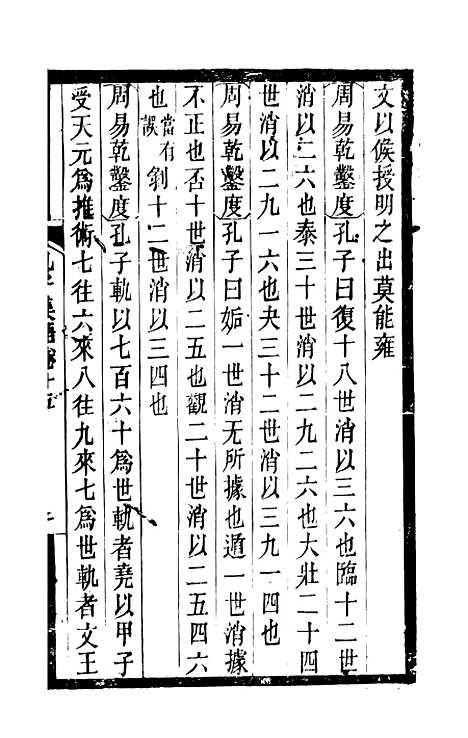 文以候授明之出莫能雍
周易乾鑿度孔子曰復十八世消以三六也臨十二世
消以二六也泰三十世消以二九二六也大壯二十四
世消以二九一六也夬三十二世消以三九一四也
周易乾鑿度孔子曰姤一世消无所據也遁一世消據
不正也否十世消以二五也觀二十世消以二五四六
也當有誤剝十二世消以三四也
周易乾鑿度孔子軌以七百六十爲世軌者堯以甲子
受天元爲推術七往六來八往九來七爲世軌者文王